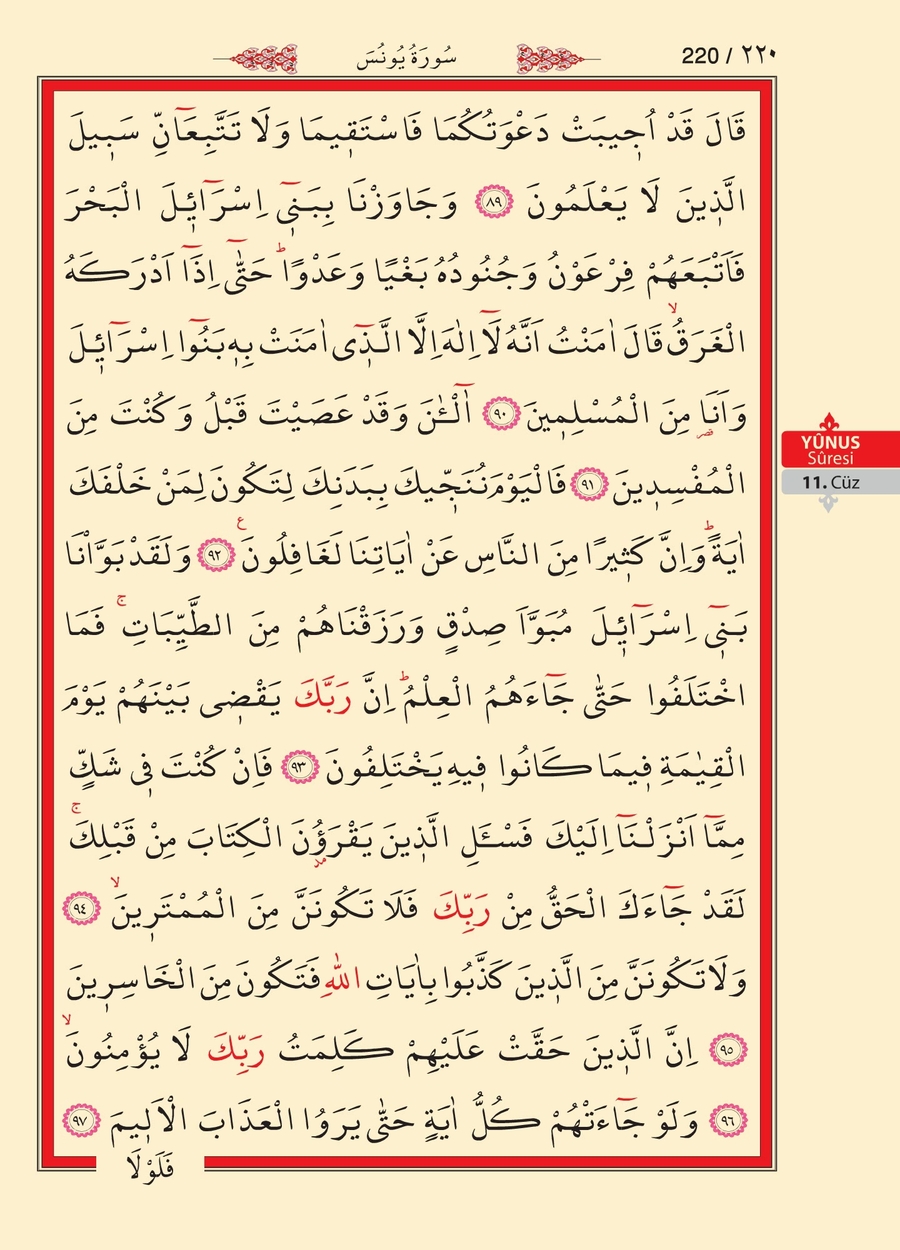 سُورَةُ يُونُسَ
220 / ٢٢٠
قَالَ قَدْ اُج۪يبَتْ دَعْوَتُكُمَا فَاسْتَق۪يمَا وَلَا تَتَّبِعَٓانِّ سَب۪يلَ
الَّذ۪ينَ لَا يَعْلَمُونَ ﴿٨٩﴾ وَجَاوَزْنَا بِبَن۪ٓي اِسْرَٓائ۪لَ الْبَحْرَ
فَاَتْبَعَهُمْ فِرْعَوْنُ وَجُنُودُهُ بَغْيًا وَعَدْوًاۜ حَتّٰٓى اِذَٓا اَدْرَكَهُ
الْغَرَقُۙ قَالَ اٰمَنْتُ اَنَّهُ لَٓا اِلٰهَ اِلَّا الَّذ۪ٓي اٰمَنَتْ بِه۪ بَنُٓوا اِسْرَٓائ۪لَ
وَاَنَا۬ مِنَ الْمُسْلِم۪ينَ ﴿٩٠﴾ آٰلْـٰٔنَ وَقَدْ عَصَيْتَ قَبْلُ وَكُنْتَ مِنَ
الْمُفْسِد۪ينَ ﴿٩١﴾ فَالْيَوْمَ نُنَجّ۪يكَ بِبَدَنِكَ لِتَكُونَ لِمَنْ خَلْفَكَ
اٰيَةًۜ وَاِنَّ كَث۪يرًا مِنَ النَّاسِ عَنْ اٰيَاتِنَا لَغَافِلُونَ۟ ﴿٩٢﴾ وَلَقَدْ بَوَّأْنَا
بَن۪ٓي اِسْرَٓائ۪لَ مُبَوَّاَ صِدْقٍ وَرَزَقْنَاهُمْ مِنَ الطَّيِّبَاتِۚ فَمَا
اخْتَلَفُوا حَتّٰى جَٓاءَهُمُ الْعِلْمُۜ اِنَّ رَبَّكَ يَقْض۪ي بَيْنَهُمْ يَوْمَ
الْقِيٰمَةِ ف۪يمَا كَانُوا ف۪يهِ يَخْتَلِفُونَ ﴿٩٣﴾ فَاِنْ كُنْتَ ف۪ي شَكٍّ
مِمَّٓا اَنْزَلْنَٓا اِلَيْكَ فَسْـَٔلِ الَّذ۪ينَ يَقْرَؤُ۫نَ الْكِتَابَ مِنْ قَبْلِكَۚ
لَقَدْ جَٓاءَكَ الْحَقُّ مِنْ رَبِّكَ فَلَا تَكُونَنَّ مِنَ الْمُمْتَر۪ينَۙ ﴿٩٤﴾
وَلَا تَكُونَنَّ مِنَ الَّذ۪ينَ كَذَّبُوا بِاٰيَاتِ اللّٰهِ فَتَكُونَ مِنَ الْخَاسِر۪ينَ
﴿٩٥﴾ اِنَّ الَّذ۪ينَ حَقَّتْ عَلَيْهِمْ كَلِمَتُ رَبِّكَ لَا يُؤْمِنُونَۙ
﴿٩٦﴾ وَلَوْ جَٓاءَتْهُمْ كُلُّ اٰيَةٍ حَتّٰى يَرَوُا الْعَذَابَ الْاَل۪يمَ ﴿٩٧﴾
فَلَوْلَا
YÛNUS
Sûresi
11. Cüz